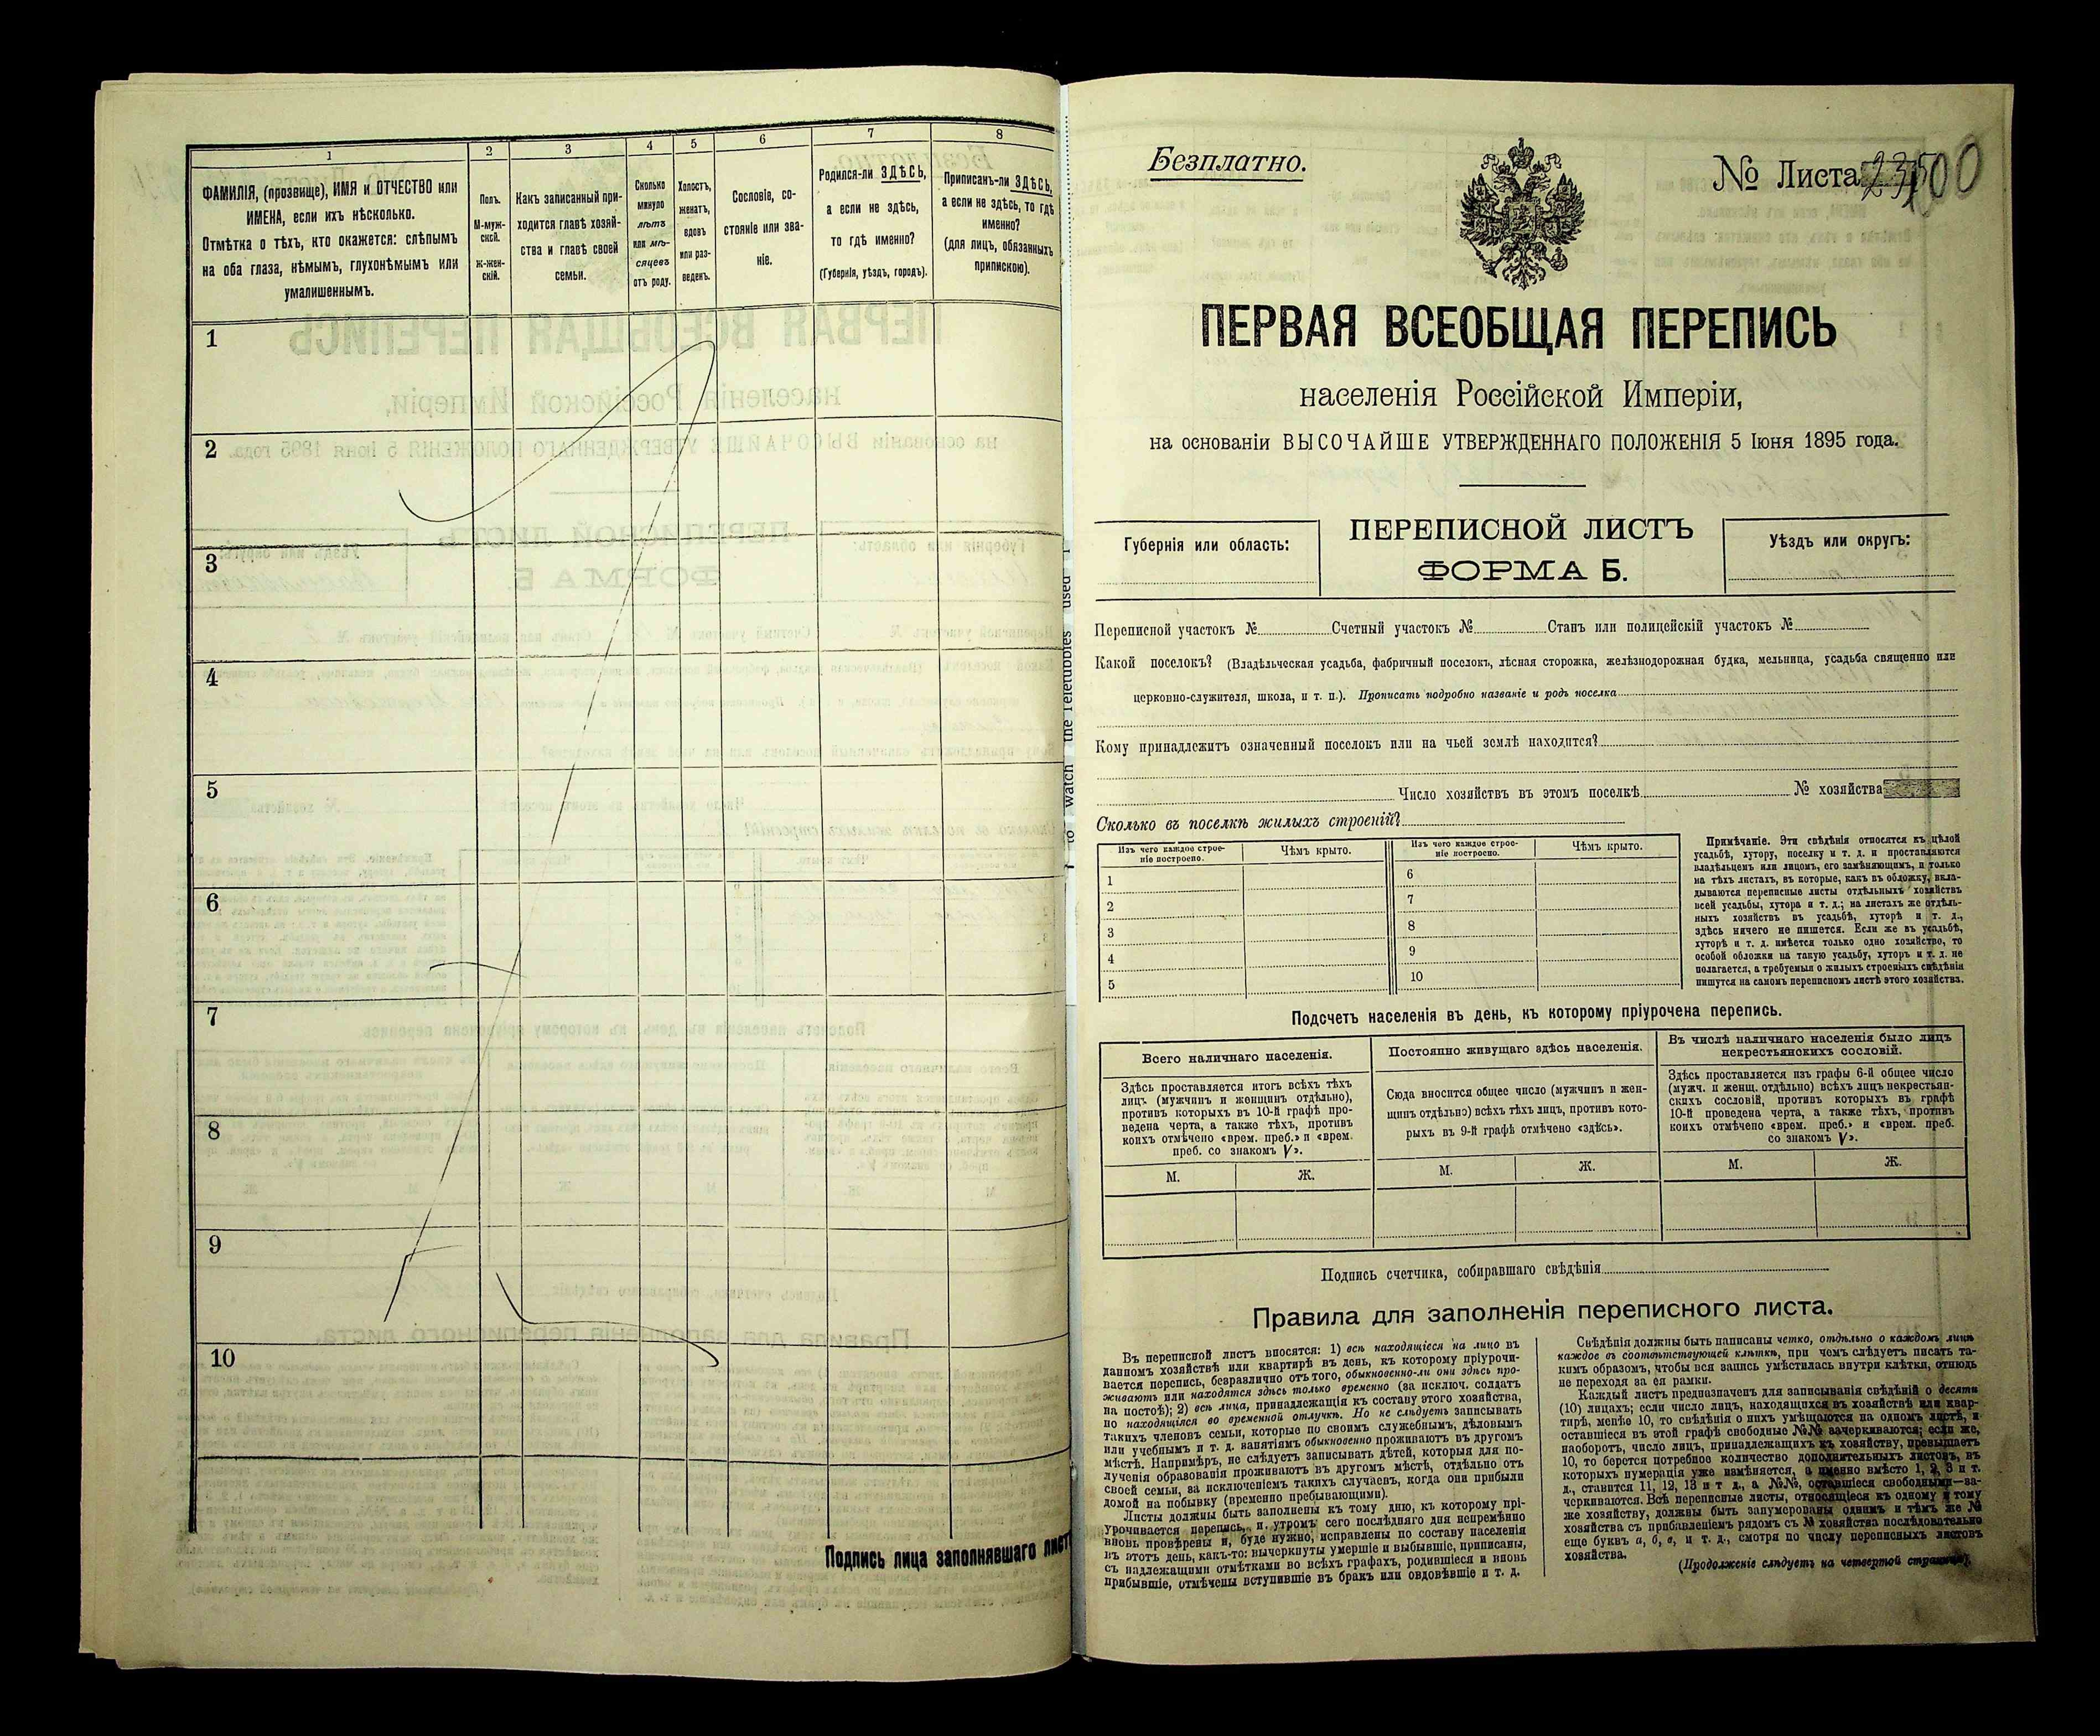 1
2
3
4
5
6
7
8
ФАМИЛІЯ, (прозвище), ИМЯ и ОТЧЕСТВО или
ИМЕНА, если ихъ нѣсколько.
Отмѣтка о тѣхъ, кто окажется: слѣпымъ
на оба глаза, нѣмымъ, глухонѣмымъ или
умалишеннымъ.
Полъ.
М-муж-
ской.
Ж-жен-
скій.
Какъ записанный при-
ходится главѣ хозяй-
ства и главѣ своей
семьи.
Сколько
минуло
лѣтъ
или мѣ-
сяцевъ
отъ роду.
Холостъ,
женатъ,
вдовъ
или раз-
веденъ.
Сословіе, со-
стояніе или зва-
ніе.
Родился-ли ЗДѢСЬ,
а если не здѣсь,
то гдѣ именно?
(Губернія, уѣздъ, городъ).
Приписанъ-ли ЗДѢСЬ,
а если не здѣсь, то гдѣ
именно?
(для лицъ, обязанныхъ
припискою).
1
2
3
4
5
6
7
8
9
10
Подпись лица заполнявшаго
to watch the Teletubbies used
Безплатно.
№ Листа
ПЕРВАЯ ВСЕОБЩАЯ ПЕРЕПИСЬ
населенія Россійской Имперіи,
на основаніи ВЫСОЧАЙШЕ УТВЕРЖДЕННАГО ПОЛОЖЕНІЯ 5 Іюня 1895 года.
Губернія или область:
ПЕРЕПИСНОЙ ЛИСТЪ
ФОРМА Б.
Уѣздъ или округъ:
Переписной участокъ № Счетный участокъ № Станъ или полицейскій участокъ №
Какой поселокъ? (Владѣльческая усадьба, фабричный поселокъ, лѣсная сторожка, желѣзнодорожная будка, мельница, усадьба священно или
церковно-служителя, школа, и т. п.). Прописать подробно названіе и родъ поселка
Кому принадлежитъ означенный поселокъ или на чьей землѣ находится?
Число хозяйствъ въ этомъ поселкѣ № хозяйства
Сколько въ поселкѣ жилыхъ строеній?
Изъ чего каждое строе-
ніе построено.
Чѣмъ крыто.
Изъ чего каждое строе-
ніе построено.
Чѣмъ крыто.
1
2
3
4
5
6
7
8
9
10
Примѣчаніе. Эти свѣдѣнія относятся къ цѣлой
усадьбѣ, хутору, поселку и т. д. и проставляются
владѣльцемъ или лицомъ, его замѣняющимъ, и только
на тѣхъ листахъ, въ которые, какъ въ обложку, вкла-
дываются переписные листы отдѣльныхъ хозяйствъ
всей усадьбы, хутора и т. д.; на листахъ же отдѣль-
ныхъ хозяйствъ въ усадьбѣ, хуторѣ и т. д.,
здѣсь ничего не пишется. Если же въ усадьбѣ,
хуторѣ и т. д. имѣется только одно хозяйство, то
особой обложки на такую усадьбу, хуторъ и т. д. не
полагается, а требуемыя о жилыхъ строеніяхъ свѣдѣнія
пишутся на самомъ переписномъ листѣ этого хозяйства.
Подсчетъ населенія въ день, къ которому пріурочена перепись.
Всего наличнаго населенія.
Постоянно живущаго здѣсь населенія.
Въ числѣ наличнаго населенія было лицъ
некрестьянскихъ сословій.
Здѣсь проставляется итогъ всѣхъ тѣхъ
лицъ (мужчинъ и женщинъ отдѣльно),
противъ которыхъ въ 10-й графѣ про-
ведена черта, а также тѣхъ, противъ
коихъ отмѣчено «врем. преб.» и «врем.
преб. со знакомъ V».
Сюда вносится общее число (мужчинъ и жен-
щинъ отдѣльно) всѣхъ тѣхъ лицъ, противъ кото-
рыхъ въ 9-й графѣ отмѣчено «здѣсь».
Здѣсь проставляется изъ графы 6-й общее число
(мужч. и женщ. отдѣльно) всѣхъ лицъ некрестьян-
скихъ сословій, противъ которыхъ въ графѣ
10-й проведена черта, а также тѣхъ, противъ
коихъ отмѣчено «врем. преб.» и «врем. преб.
со знакомъ V».
М. Ж. М. Ж. М. Ж.
Подпись счетчика, собиравшаго свѣдѣнія
Правила для заполненія переписного листа.
Въ переписной листъ вносятся: 1) всѣ находящіеся на лицо въ
данномъ хозяйствѣ или квартирѣ въ день, къ которому пріурочи-
вается перепись, безразлично отъ того, обыкновенно-ли они здѣсь про-
живаютъ или находятся здѣсь только временно (за исключ. солдатъ
на постоѣ); 2) всѣ лица, принадлежащія къ составу этого хозяйства,
но находящіяся во временной отлучкѣ. Но не слѣдуетъ записывать
такихъ членовъ семьи, которые по своимъ служебнымъ, дѣловымъ
или учебнымъ и т. д. занятіямъ обыкновенно проживаютъ въ другомъ
мѣстѣ. Напримѣръ, не слѣдуетъ записывать дѣтей, которыя для по-
лученія образованія проживаютъ въ другомъ мѣстѣ, отдѣльно отъ
своей семьи, за исключеніемъ такихъ случаевъ, когда они прибыли
домой на побывку (временно пребывающими).
Листы должны быть заполнены къ тому дню, къ которому прі-
урочивается перепись, и утромъ сего послѣдняго дня непремѣнно
вновь провѣрены и, буде нужно, исправлены по составу населенія
въ этотъ день, какъ-то: вычеркнуты умершіе и выбывшіе, приписаны,
съ надлежащими отмѣтками во всѣхъ графахъ, родившіеся и вновь
прибывшіе, отмѣчены вступившіе въ бракъ или овдовѣвшіе и т. д.
Свѣдѣнія должны быть написаны четко, отдѣльно о каждомъ лицѣ
каждое въ соотвѣтствующей клѣткѣ, при чемъ слѣдуетъ писать та-
кимъ образомъ, чтобы вся запись умѣстилась внутри клѣтки, отнюдь
не переходя за ея рамки.
Каждый листъ предназначенъ для записыванія свѣдѣній о десяти
(10) лицахъ; если число лицъ, находящихся въ хозяйствѣ или квар-
тирѣ, менѣе 10, то свѣдѣнія о нихъ умѣщаются на одномъ листѣ, и
оставшіеся въ этой графѣ свободные №№ зачеркиваются; если же,
наоборотъ, число лицъ, принадлежащихъ къ хозяйству, превышаетъ
10, то берется потребное количество дополнительныхъ листовъ, въ
которыхъ нумерація уже измѣняется, а именно вмѣсто 1, 2, 3 и т.
д., ставится 11, 12, 13 и т д., а №№, оставшіеся свободными—за-
черкиваются. Всѣ переписные листы, относящіеся къ одному и тому
же хозяйству, должны быть занумерованы однимъ и тѣмъ же №
хозяйства съ прибавленіемъ рядомъ съ № хозяйства послѣдовательно
еще буквъ а, б, в, и т. д., смотря по числу переписныхъ листовъ
хозяйства.
(Продолженіе слѣдуетъ на четвертой страницѣ).